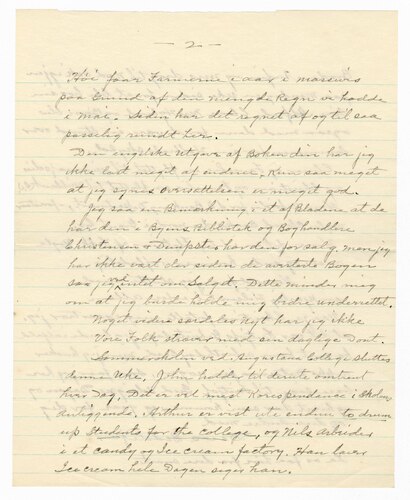 — 2 —
Höi faar Farmerne i aar i massevis
paa Grund af den mengde Regn vi hadde
i Mai. Siden har det regnet af og til saa
passelig rundt her.
Den engelske Utgave af Boken din har jeg
ikke læst meget af endnu. Kun saa meget
at jeg synes Oversettelsen er meget god.
Jeg saa en Bemærkning i et af Bladene at de
har den i Byens Bibliotek og Boghandlere
Christensen & Dempster har den for salg, men jeg
har ikke vært der siden de averterte Bogen
saa jeg ved intet om Salget. Dette minder meg
om at jeg burde holde mig bedre underrettet.
Noget videre særdeles Nyt har jeg ikke
Vore Folk strever med sin daglige Dont.
Sommerskolen ved Augustana College sluttes
denne Uke. John holder til derute omtrent
hver Dag. Det er vel mest Korrespondance i Skolens
Anliggende. Arthur er vist ute endnu to drum
up Students for the College, og Nils Arbeider
i et Candy og Ice cream factory. Han laver
Ice cream hele Dagen siger han.